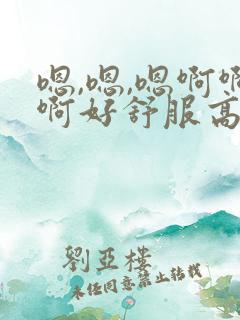 嗯,嗯,嗯啊啊
啊好舒服高
劉亞樓
未经同意禁止转载